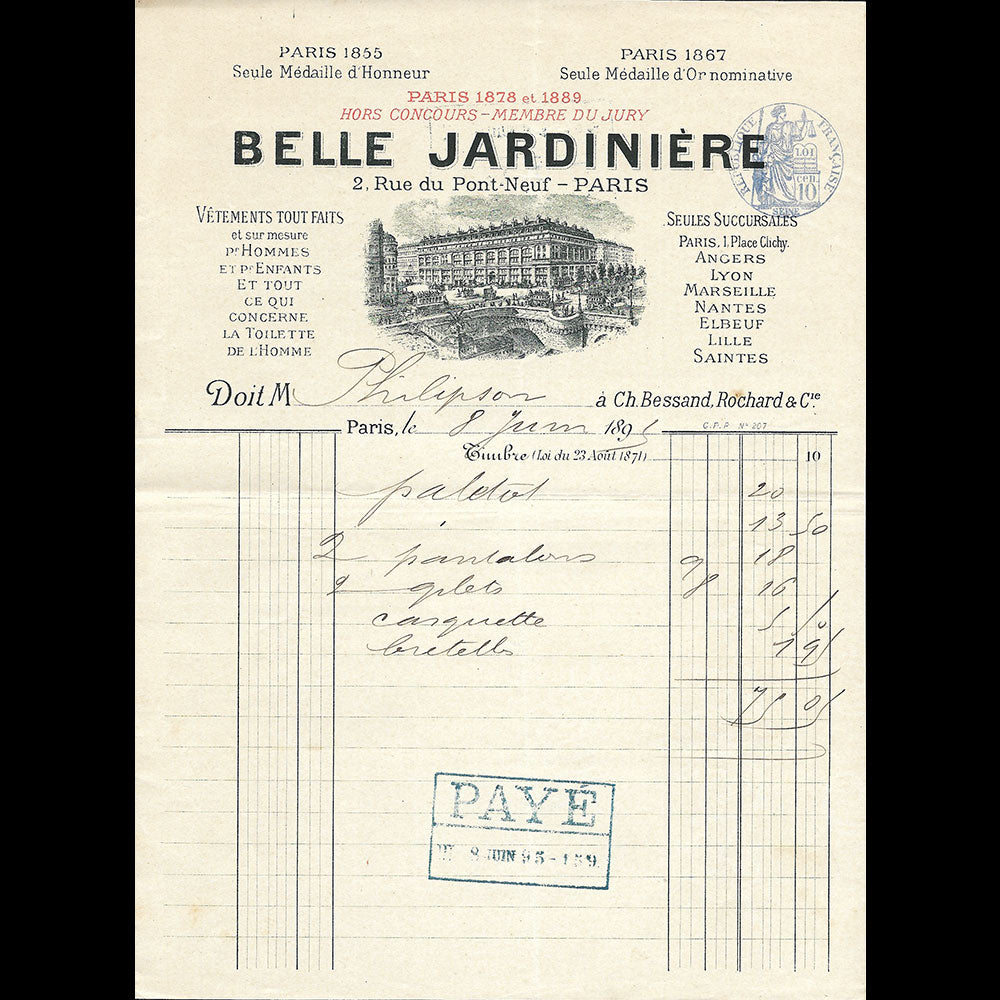 PARIS 1855
Seule Médaille d'Honneur
PARIS 1867
Seule Médaille d'Or nominative
PARIS 1878 et 1889
HORS CONCOURS – MEMBRE DU JURY
BELLE JARDINIÈRE
2, Rue du Pont-Neuf – PARIS
RÉPUBLIQUE FRANÇAISE
LOI
cen.
10
SEINE
VÊTEMENTS TOUT FAITS
et sur mesure
Pr HOMMES
ET Pr ENFANTS
ET TOUT
CE QUI
CONCERNE
LA TOILETTE
DE L'HOMME
SEULES SUCCURSALES
PARIS, 1, Place Clichy.
ANGERS
LYON
MARSEILLE
NANTES
ELBEUF
LILLE
SAINTES
Doit M Philipson à Ch. Bessand, Rochard & Cie.
Paris, le 8 Juin 1895
C.F.P. No 207
Timbre (Loi du 23 Août 1871) 10
paletot 20
13 50
2 pantalons 9 18
2 gilets 8 16
casquette 5 50
bretelles 1 95
75 05
PAYÉ
8 JUIN 95 - 159